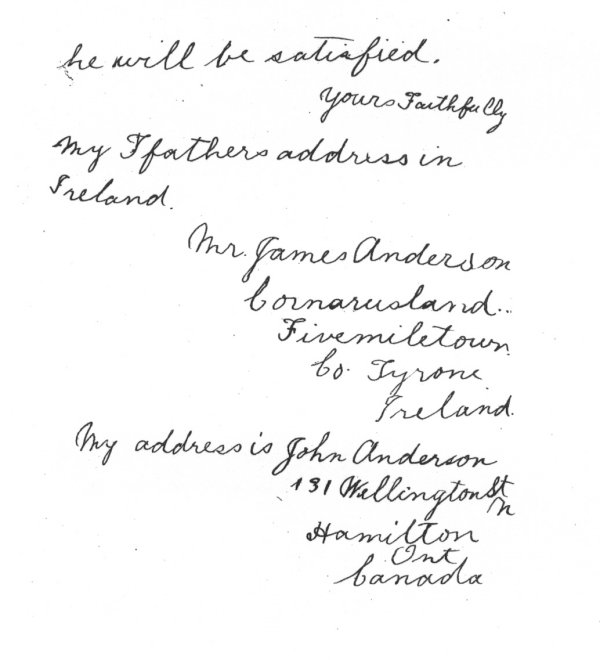 he will be satisfied.
Yours Faithfully
My Ffathers address in
Ireland.
Mr. James Anderson
Cornarusland..
Fivemiletown
Co. Tyrone
Ireland.
My address is John Anderson
131 Wellington St
N
Hamilton
Ont
Canada